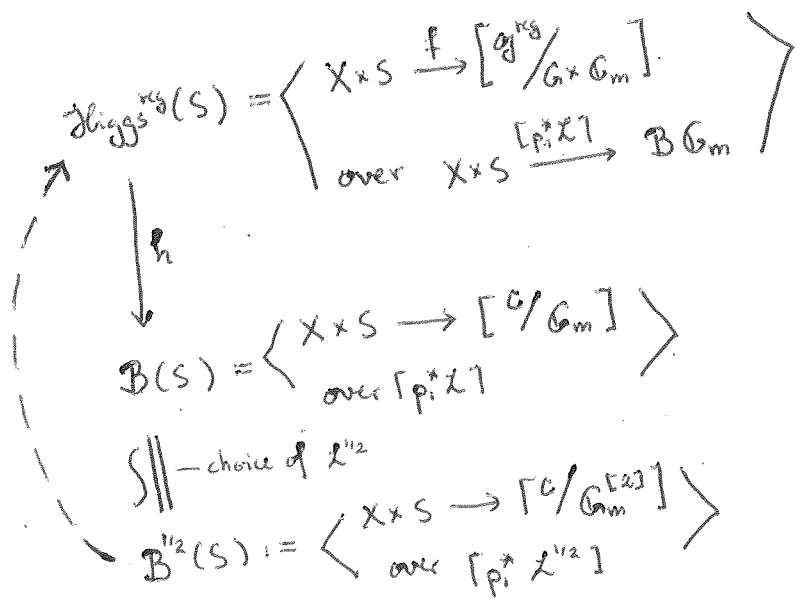 Higgs^{reg}(S) = ⟨ X×S \xrightarrow{f} [𝔤^{reg}/G×𝔾_m].
over X×S \xrightarrow{[p_1^*ℒ]} B𝔾_m ⟩
h
B(S) = ⟨ X×S → [𝔠/𝔾_m]
over [p_1^*ℒ] ⟩
∫||| — choice of ℒ^{1/2}
B^{1/2}(S) := ⟨ X×S → [𝔠/𝔾_m^{[2]}]
over [p_1^*ℒ^{1/2}] ⟩